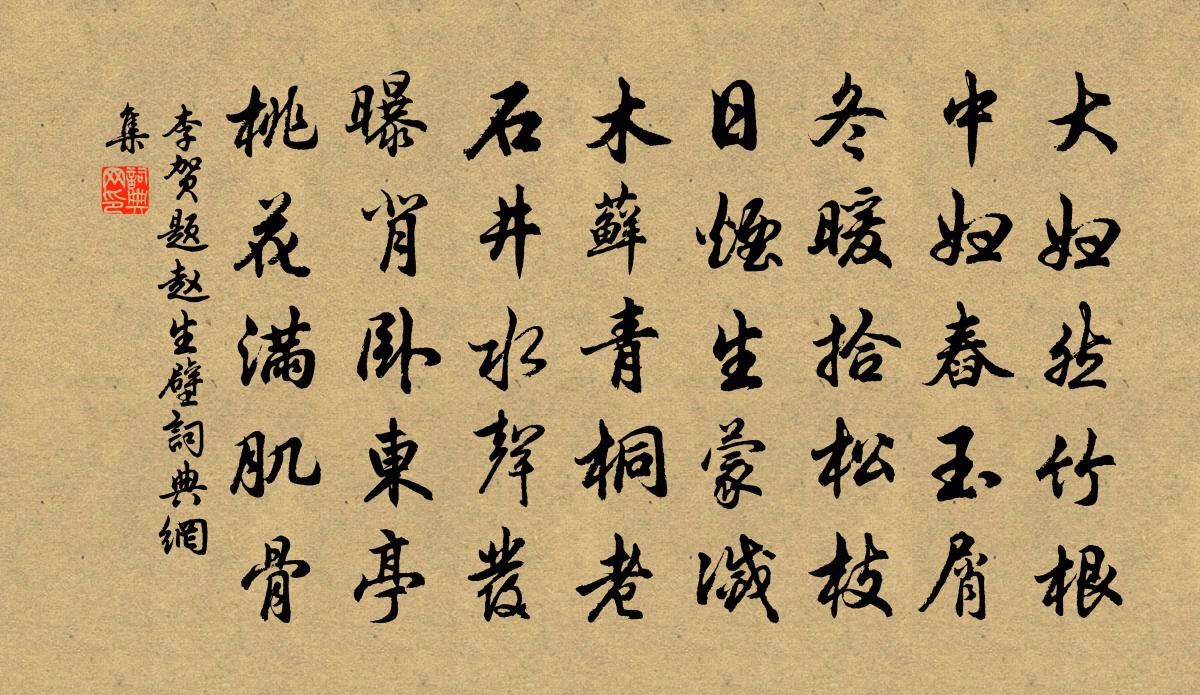 大妇然竹根
中妇舂玉屑
冬暖拾松枝
日煙生蒙滅
木蘚青桐老
石井水聲發
曝背卧東亭
桃花满肌骨
李贺题赵生壁詞典網
集
詞典网印